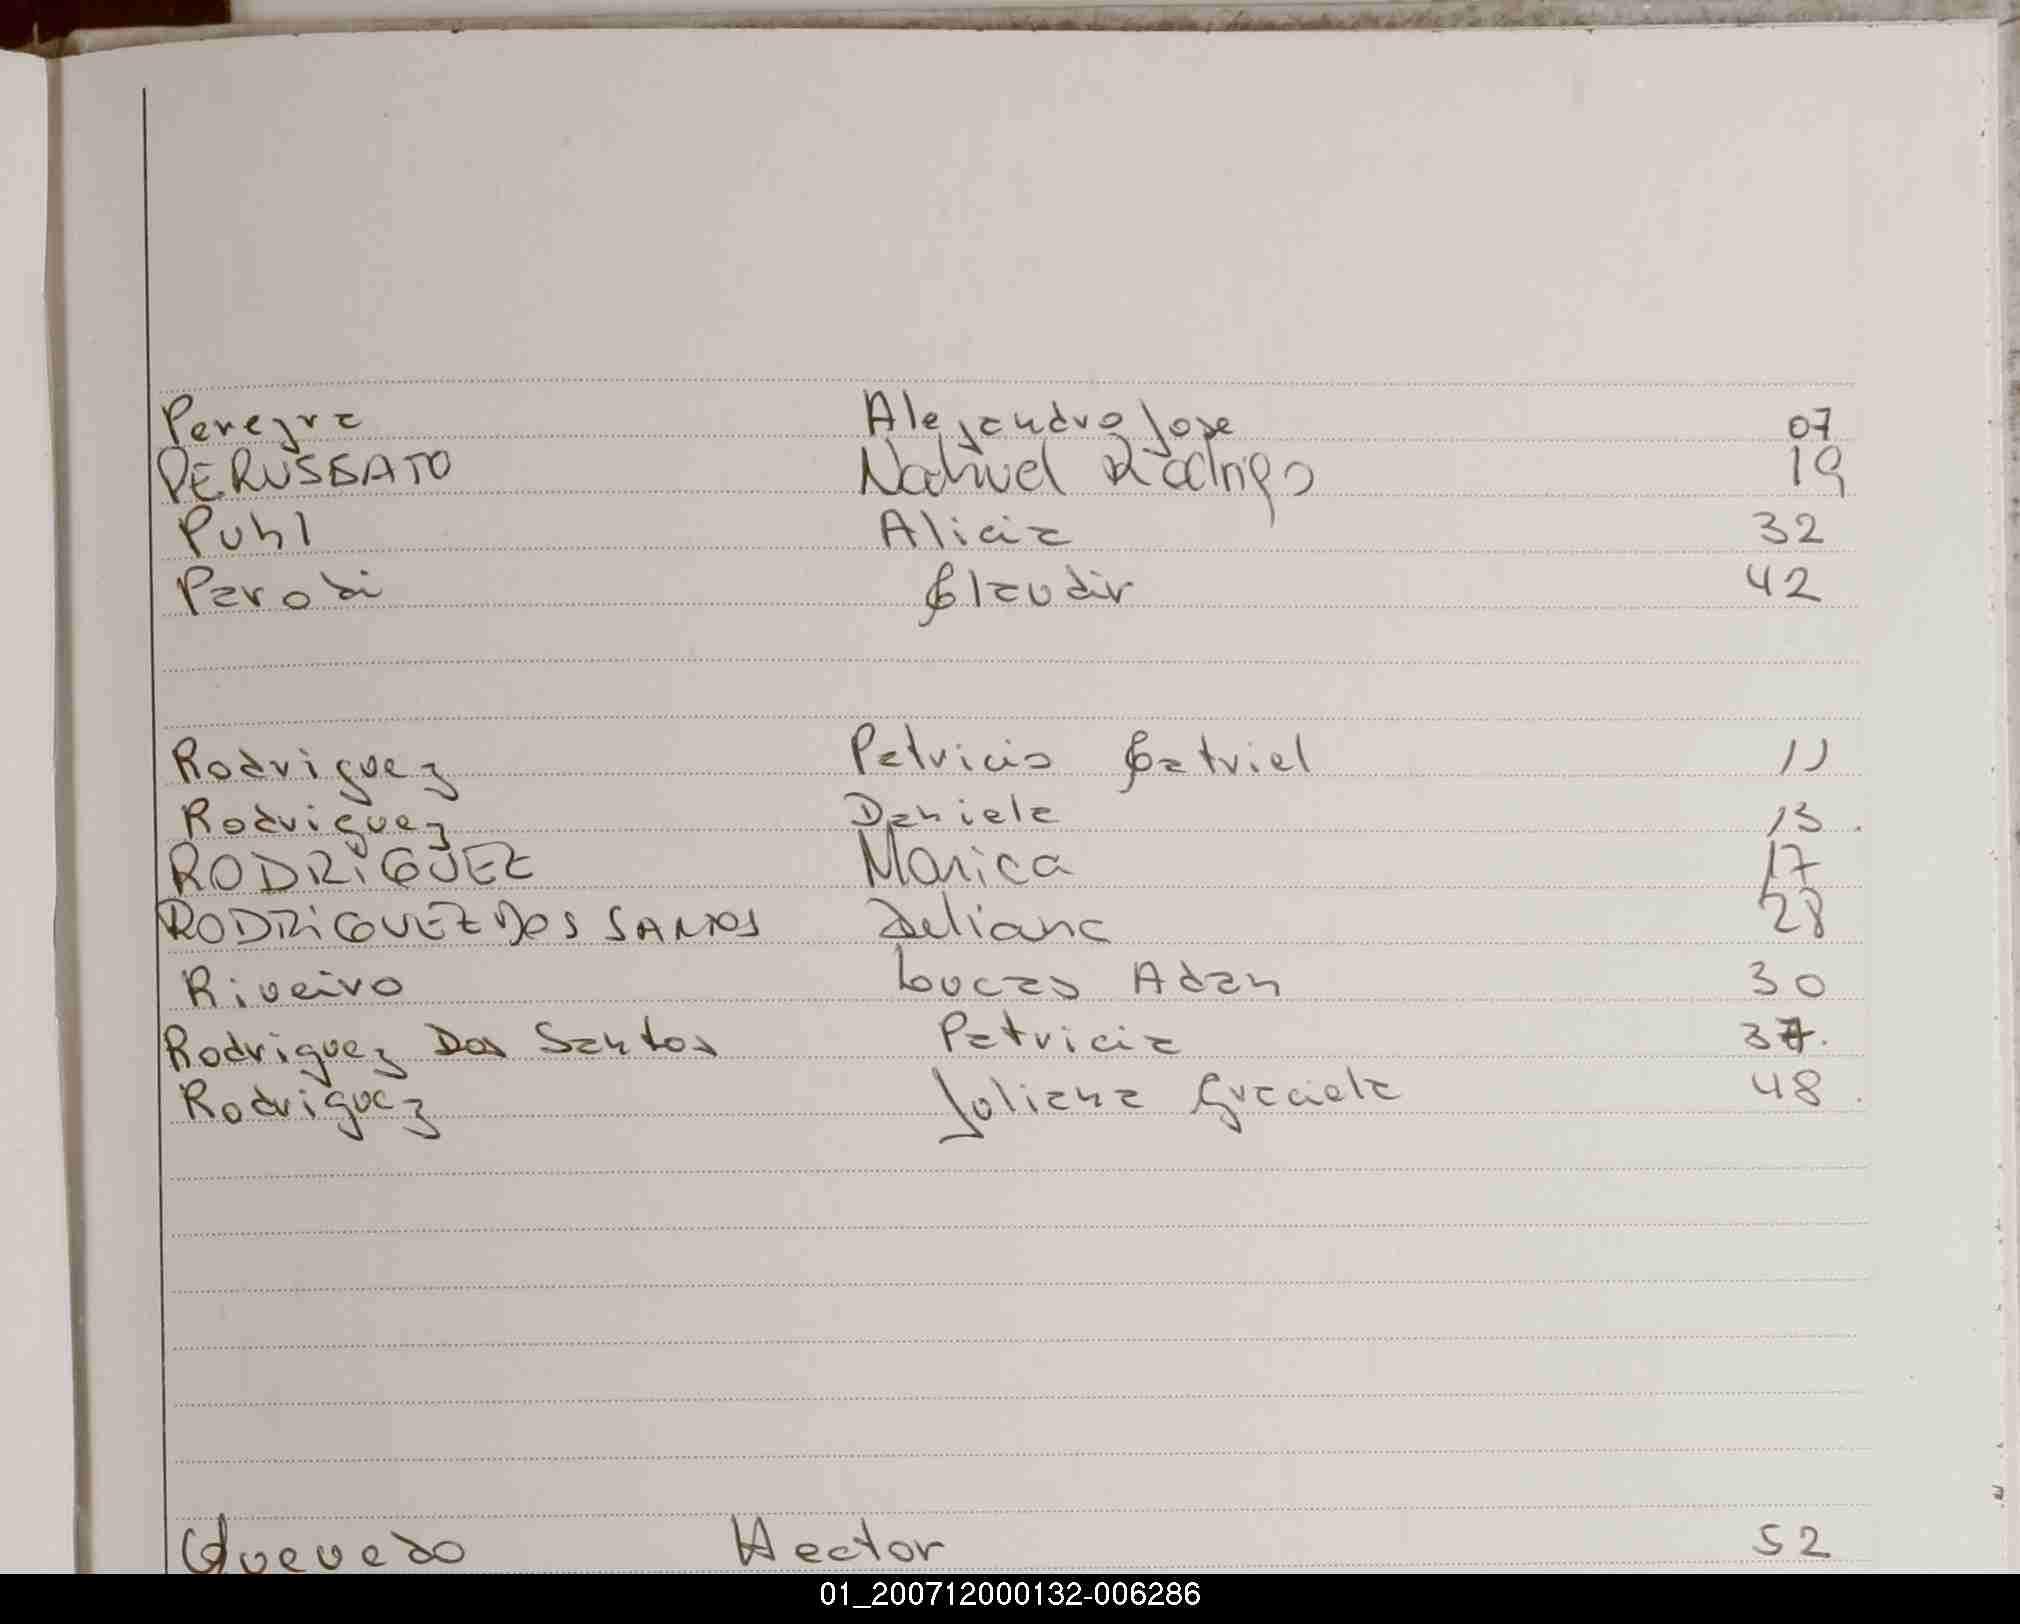 Pereyra Alejandro Jose 07
PERUSSATO Nahuel Rodrigo 19
Puhl Alicia 32
Parodi Claudir 42
Rodriguez Patricio Gabriel 11
Rodriguez Daniela 13
RODRIGUEZ Marica 17
RODRIGUEZ DOS SANTOS Deliana 28
Riveiro Lucas Adan 30
Rodriguez Dos Santos Patricia 37
Rodriguez Juliana Graciela 48
Quevedo Hector 52
01_200712000132-006286